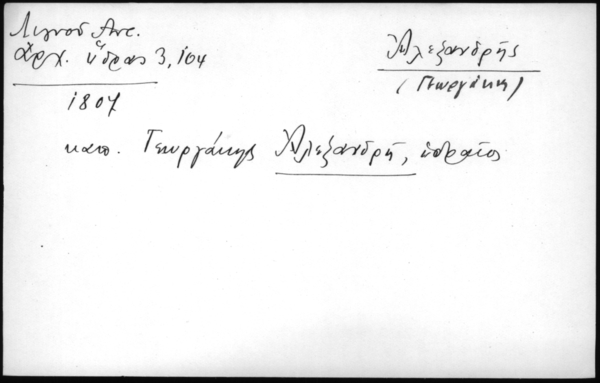 Λιγνοῦ Ἀντ.
Ἀρχ. Ὕδρας 3, 104
1807
Ἀλεξανδρῆς
(Γεωργάκης)
καπ. Γεωργάκης Ἀλεξανδρῆ, ὑδραῖος